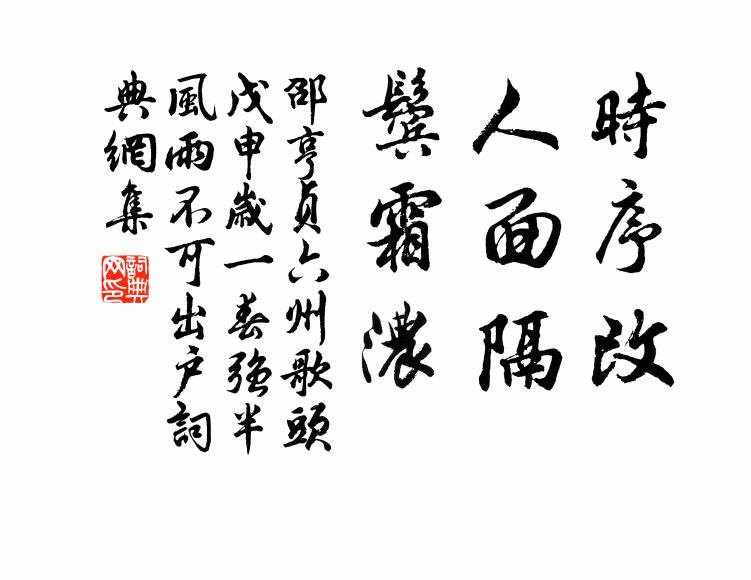 時序改
人面隔
鬢霜濃
邵亨貞六州歌頭
戊申歲一春強半
風雨不可出戶詞
典網集
詞典網印